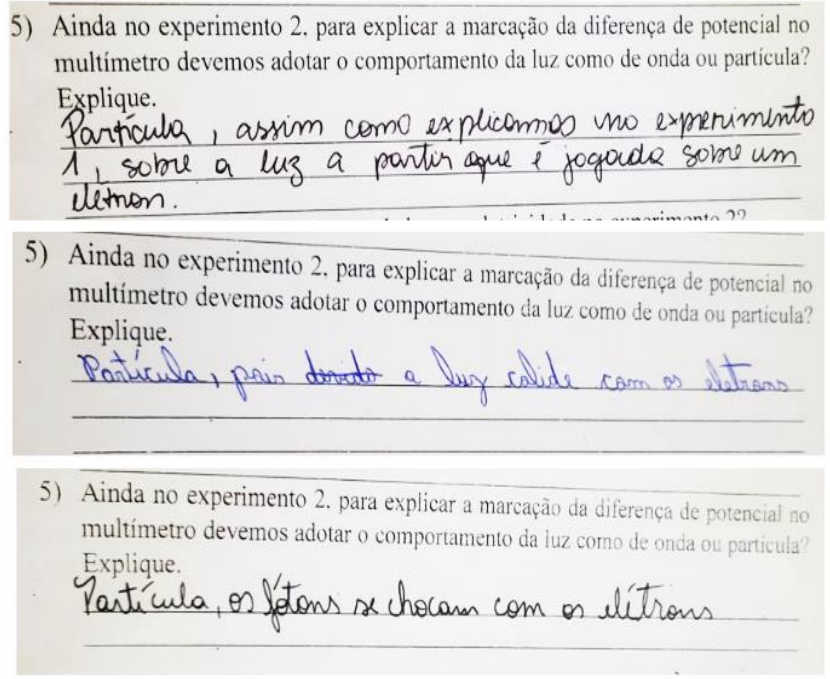 5) Ainda no experimento 2. para explicar a marcação da diferença de potencial no
multímetro devemos adotar o comportamento da luz como de onda ou partícula?
Explique.
Partícula, assim como explicamos no experimento
1, sobre a luz a partir que é jogada sobre um
elétron.
5) Ainda no experimento 2. para explicar a marcação da diferença de potencial no
multímetro devemos adotar o comportamento da luz como de onda ou partícula?
Explique.
Partícula, pois devido a luz colide com os eletrons
5) Ainda no experimento 2. para explicar a marcação da diferença de potencial no
multímetro devemos adotar o comportamento da luz como de onda ou partícula?
Explique.
Partícula, os fótons se chocam com os elétrons